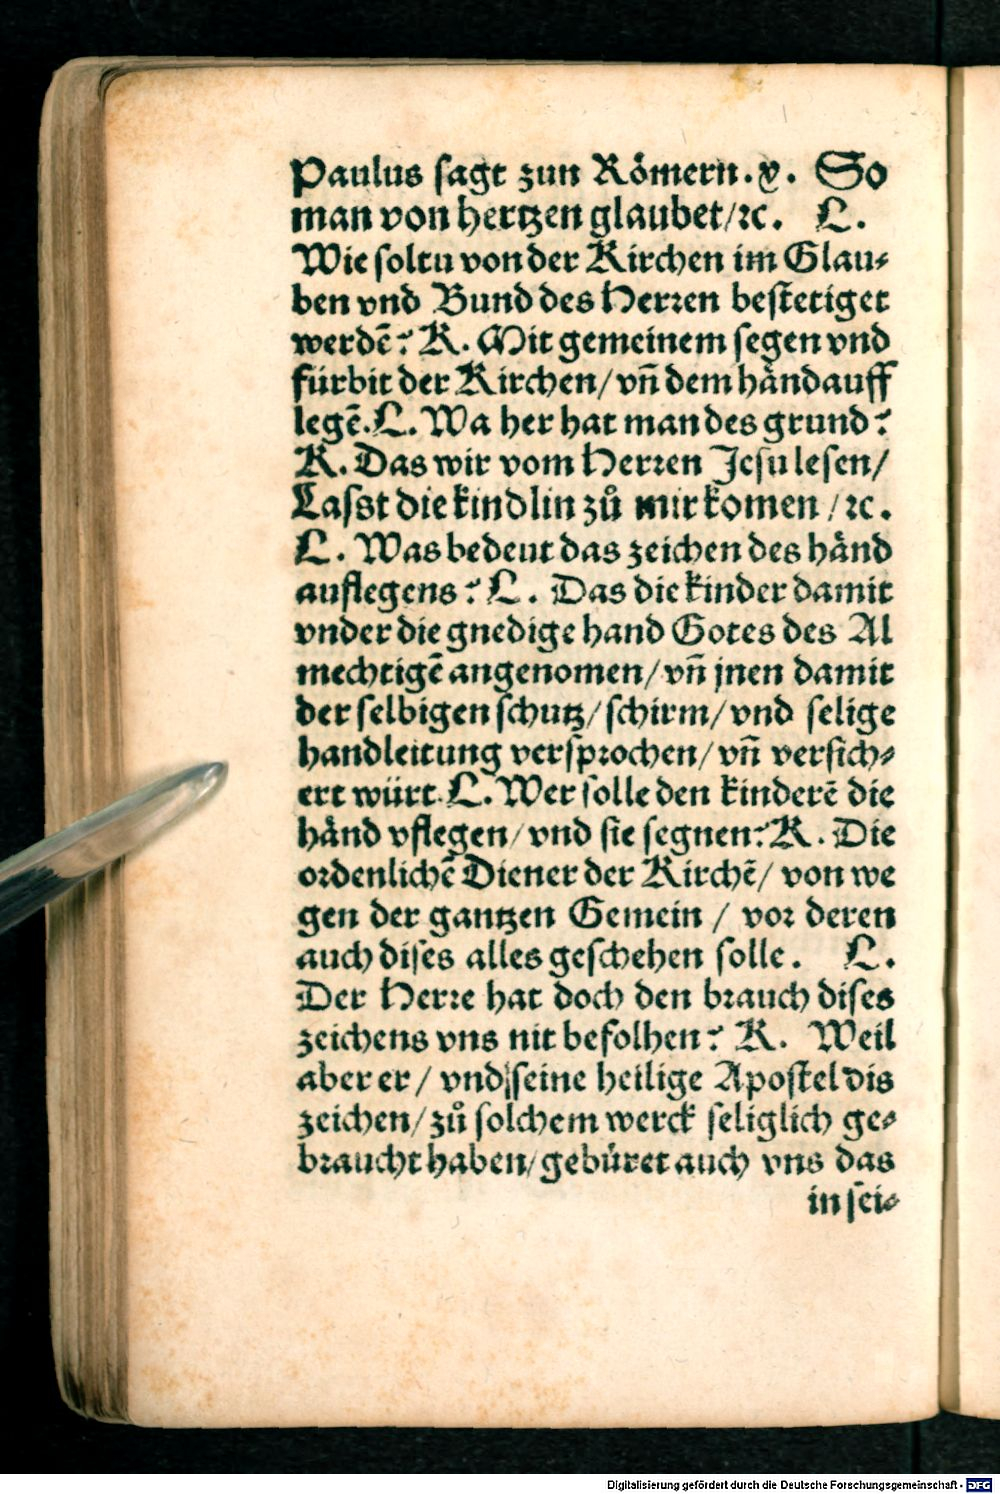 Paulus ſagt zun Römern.x. So
man von hertzen glaubet/ꝛc. L.
Wie ſoltu von der Kirchen im Glau⸗
ben vnd Bund des Herꝛen beſtetiget
werdẽ? K. Mit gemeinem ſegen vnd
fürbit der Kirchen/vñ dem händauff
legẽ. L. Wa her hat man des grund?
K. Das wir vom Herꝛen Jeſu leſen/
Laſst die kindlin zů mir komen /ꝛc.
L. Was bedeut das zeichen des händ
auflegens? L. Das die kinder damit
vnder die gnedige hand Gotes des Al
mechtigẽ angenomen/vñ jnen damit
der ſelbigen ſchutz/ſchirm/vnd ſelige
handleitung verſpꝛochen/vñ verſich⸗
ert würt. L. Wer ſolle den kinderẽ die
händ vflegen/vnd ſie ſegnen? K. Die
oꝛdenlichẽ Diener der Kirchẽ/ von we
gen der gantzen Gemein / voꝛ deren
auch diſes alles geſchehen ſolle. L.
Der Herꝛe hat doch den bꝛauch diſes
zeichens vns nit befolhen? K. Weil
aber er/ vnd ſeine heilige Apoſtel dis
zeichen/zů ſolchem werck ſeliglich ge⸗
bꝛaucht haben/gebüret auch vns das
in ſei⸗
Digitalisierung gefördert durch die Deutsche Forschungsgemeinschaft - DFG